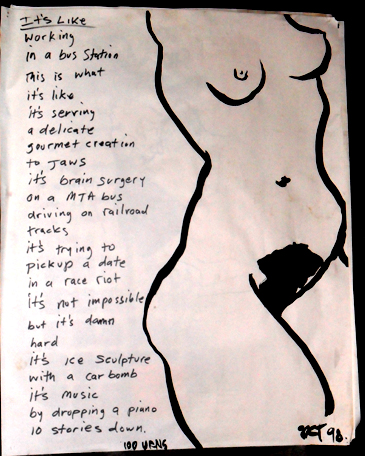 It's Like
Working
in a bus Station
This is what
it's like
it's serving
a delicate
gourmet creation
to Jaws
it's brain surgery
on a MTA bus
driving on railroad
tracks
it's trying to
pickup a date
in a race riot
it's not impossible
but it's damn
hard
it's ice sculpture
with a car bomb
it's music
by dropping a piano
10 stories down.
100 URNS
98.